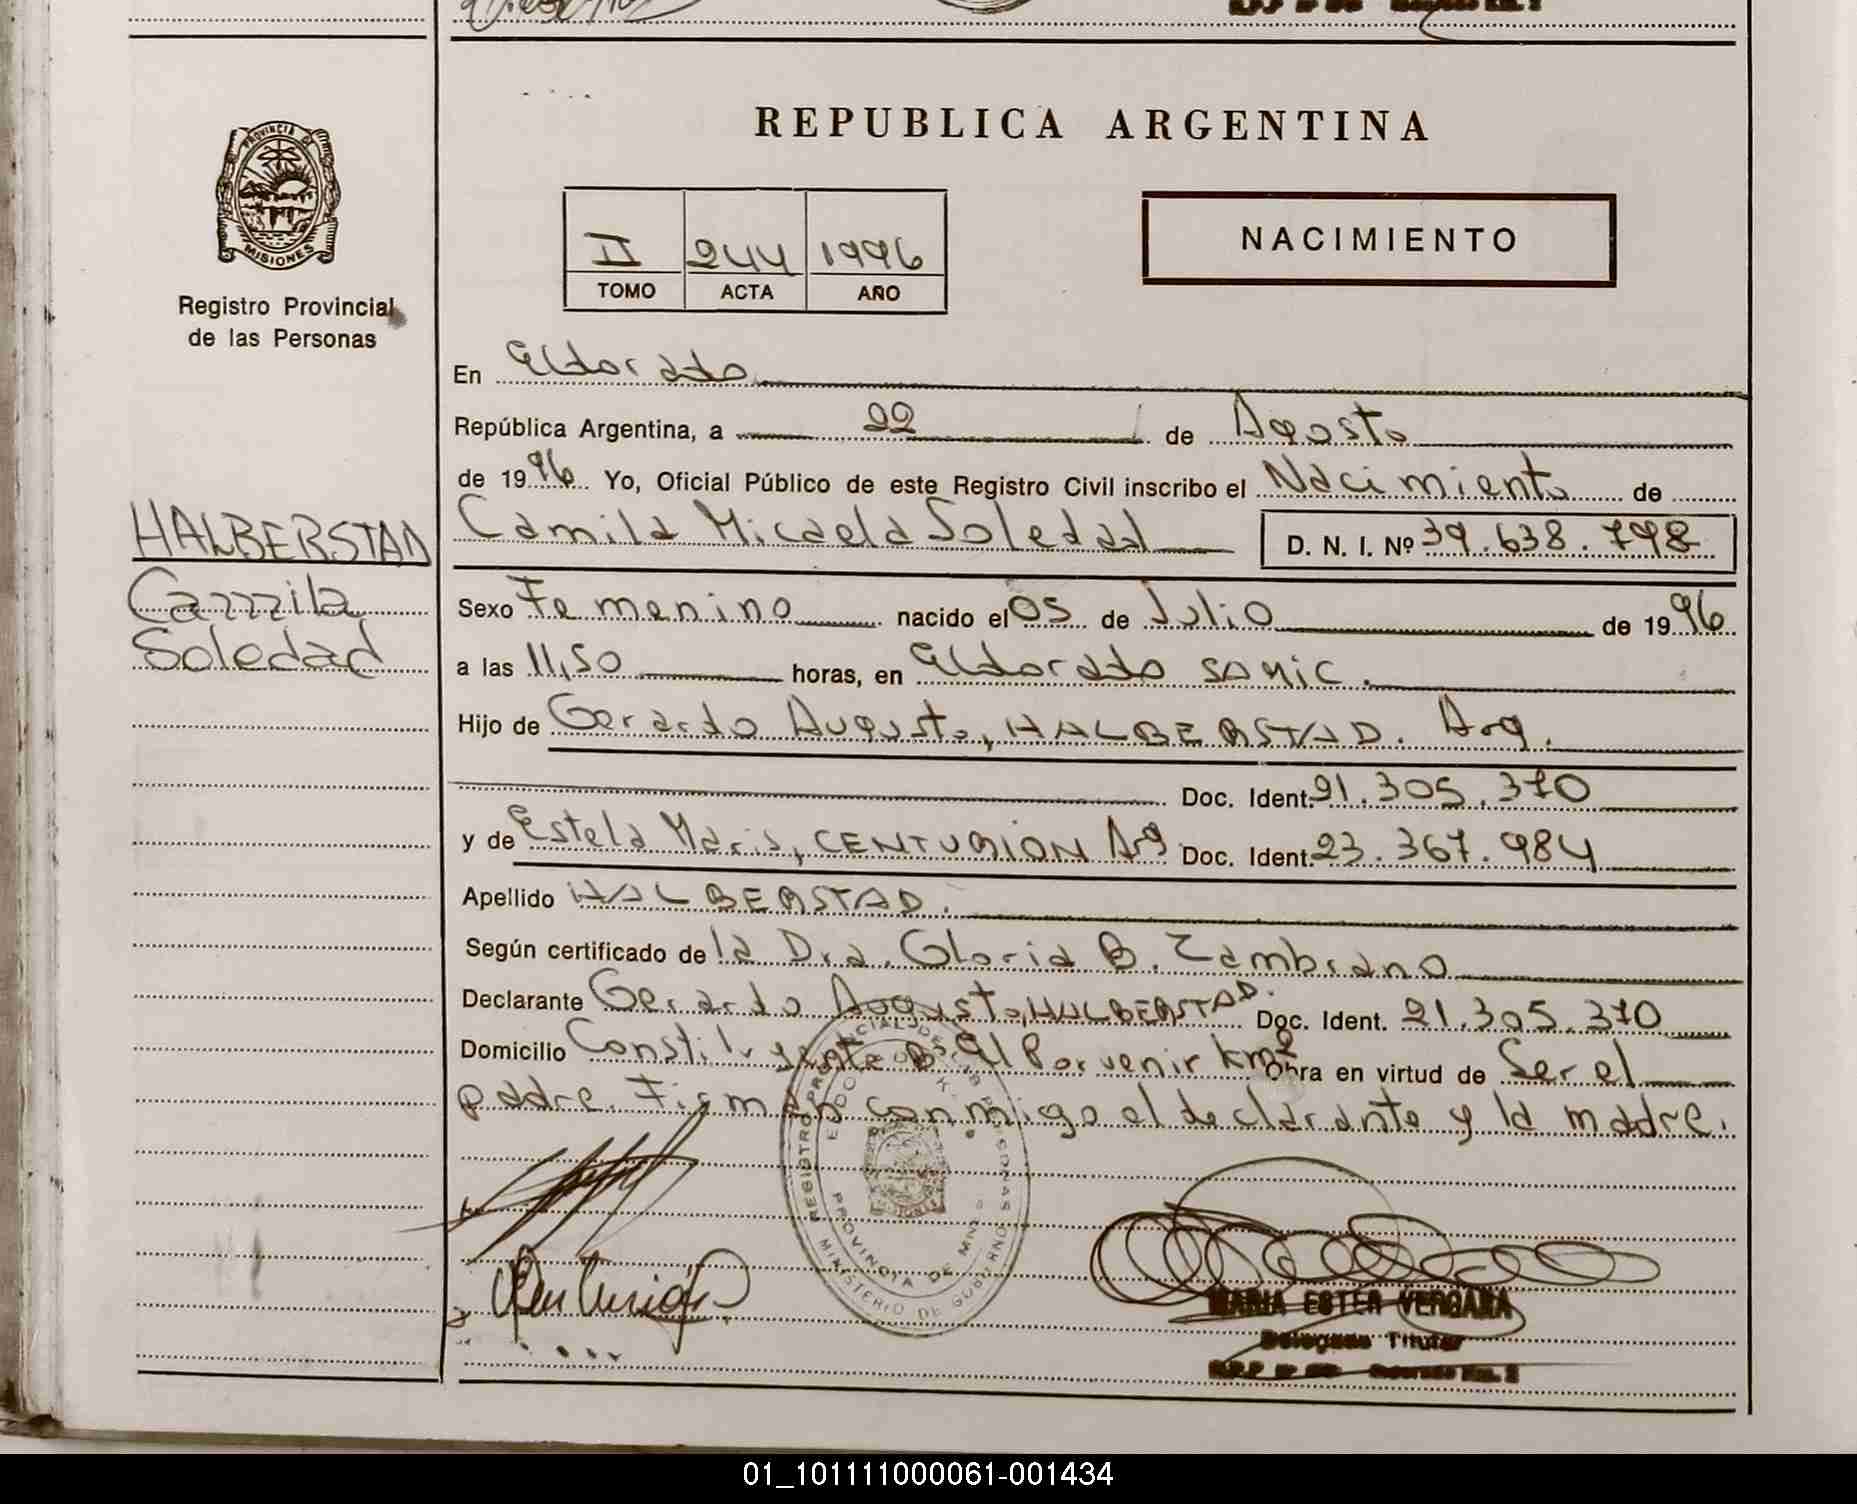 REPUBLICA ARGENTINA
PROVINCIA DE
MISIONES
Registro Provincial
de las Personas
HALBERSTAD
Camila
Soledad
II 244 1996
TOMO ACTA AÑO
NACIMIENTO
En Eldorado
República Argentina, a 22 de Agosto
de 1996 Yo, Oficial Público de este Registro Civil inscribo el Nacimiento de
Camila Micaela Soledad D. N. I. Nº 39.638.798
Sexo Femenino nacido el 05 de Julio de 1996
a las 11,50 horas, en Eldorado SAMIC.
Hijo de Gerardo Augusto, HALBERSTAD. Arg.
Doc. Ident. 21.305.370
y de Estela Maris, CENTURION Arg Doc. Ident. 23.367.984
Apellido HALBERSTAD.
Según certificado de la Dra. Gloria B. Zambrano
Declarante Gerardo Augusto, HALBERSTAD. Doc. Ident. 21.305.370
Domicilio Constituyente Bº El Porvenir km 2 Obra en virtud de Ser el
padre. Firman conmigo el declarante y la madre.
REGISTRO PROVINCIAL DE LAS PERSONAS
MINISTERIO DE GOBIERNO
PROVINCIA DE MNES
MARIA ESTER VERGARA
Delegada Titular
01_101111000061-001434